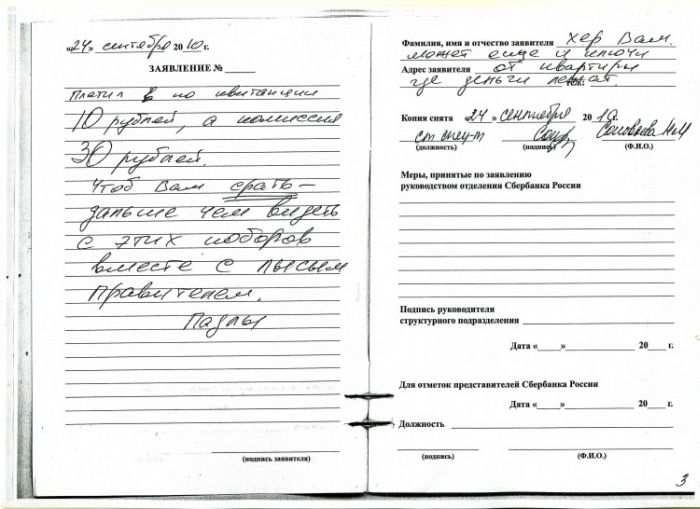 «24» сентября 2010 г.
ЗАЯВЛЕНИЕ №
Платил по квитанции
10 рублей, а комиссия
30 рублей.
Чтоб Вам срать
дальше чем видеть
с этих поборов
вместе с лысым
правителем.
(подпись заявителя)
Фамилия, имя и отчество заявителя Хер Вам.
может еще и ключи
Адрес заявителя от квартиры
где деньги лежат.
Копия снята 24 сентября 2010 г.
ст спец-т Соловьева НМ
(должность) (подпись) (Ф.И.О.)
Меры, принятые по заявлению
руководством отделения Сбербанка России
Подпись руководителя
структурного подразделения
Дата «    »     20    г.
Для отметок представителей Сбербанка России
Дата «    »     20    г.
Должность
(подпись) (Ф.И.О.)
3